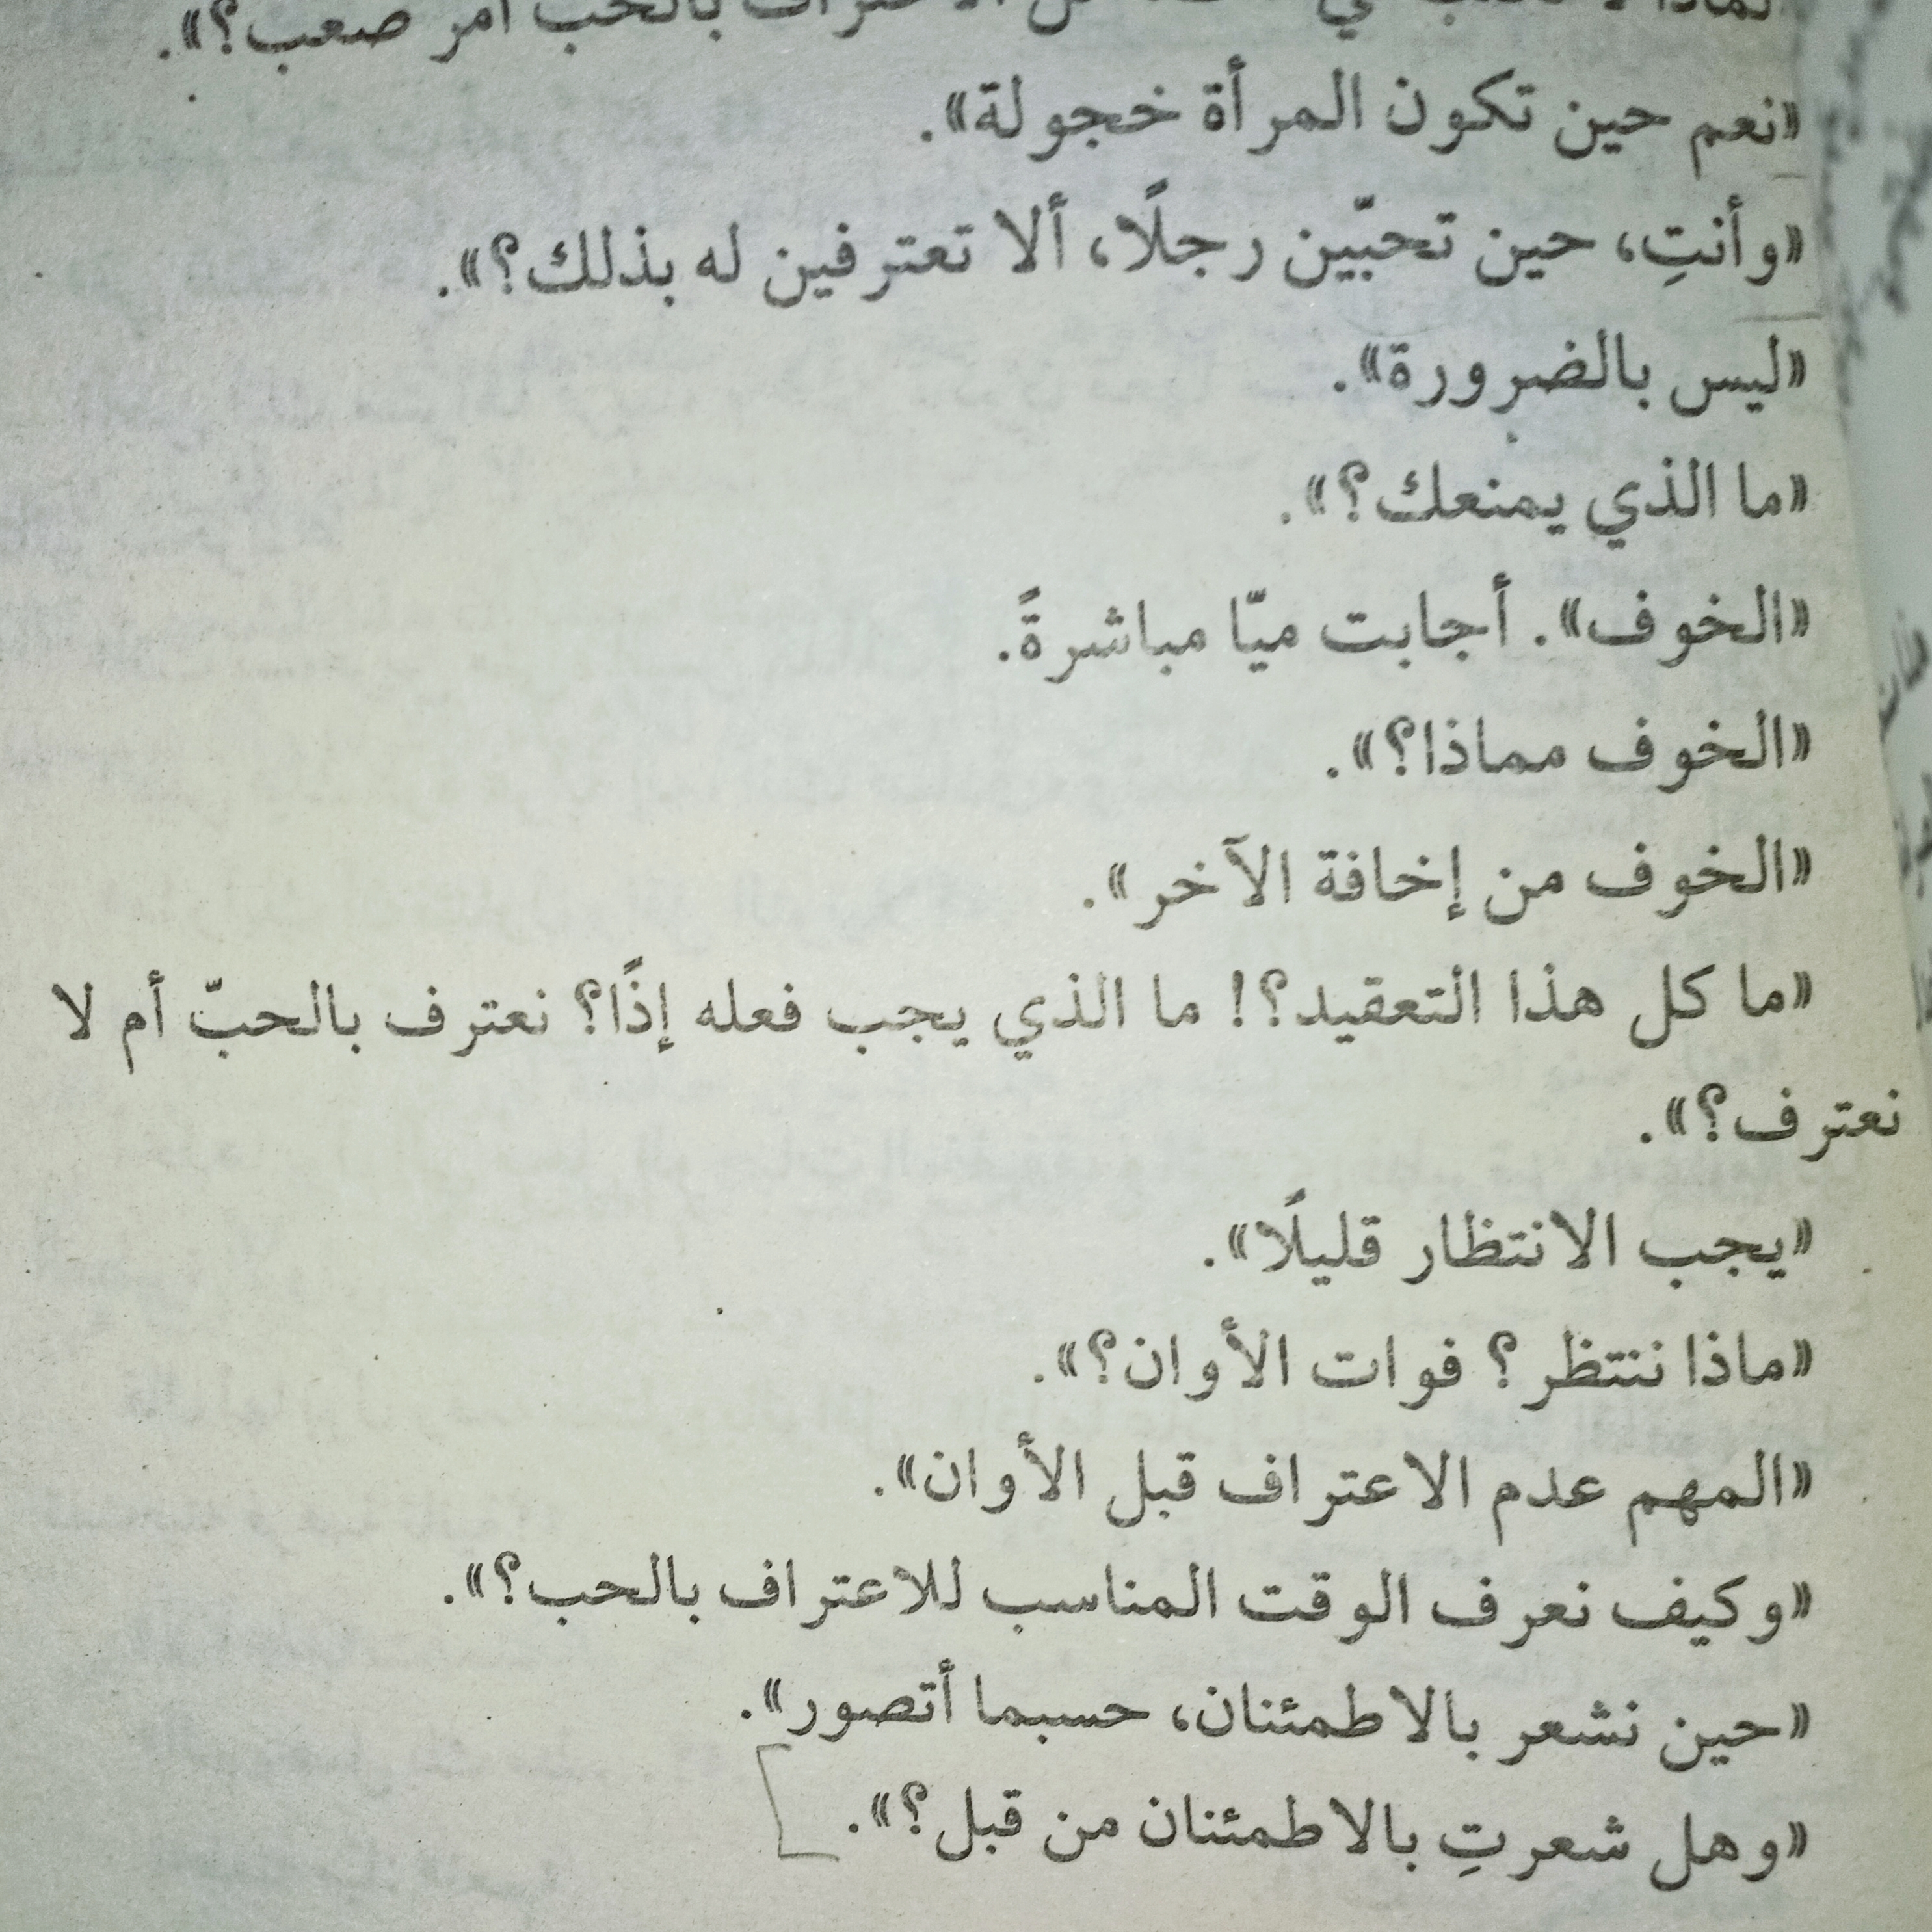 الاعتراف بالحب أمر صعب؟».
«نعم حين تكون المرأة خجولة».
«وأنتِ، حين تحبّين رجلًا، ألا تعترفين له بذلك؟».
«ليس بالضرورة».
«ما الذي يمنعك؟».
«الخوف». أجابت ميّا مباشرةً.
«الخوف مماذا؟».
«الخوف من إخافة الآخر».
«ما كل هذا التعقيد؟! ما الذي يجب فعله إذًا؟ نعترف بالحبّ أم لا
نعترف؟».
«يجب الانتظار قليلًا».
«ماذا ننتظر؟ فوات الأوان؟».
«المهم عدم الاعتراف قبل الأوان».
«وكيف نعرف الوقت المناسب للاعتراف بالحب؟».
«حين نشعر بالاطمئنان، حسبما أتصور».
«وهل شعرتِ بالاطمئنان من قبل؟».